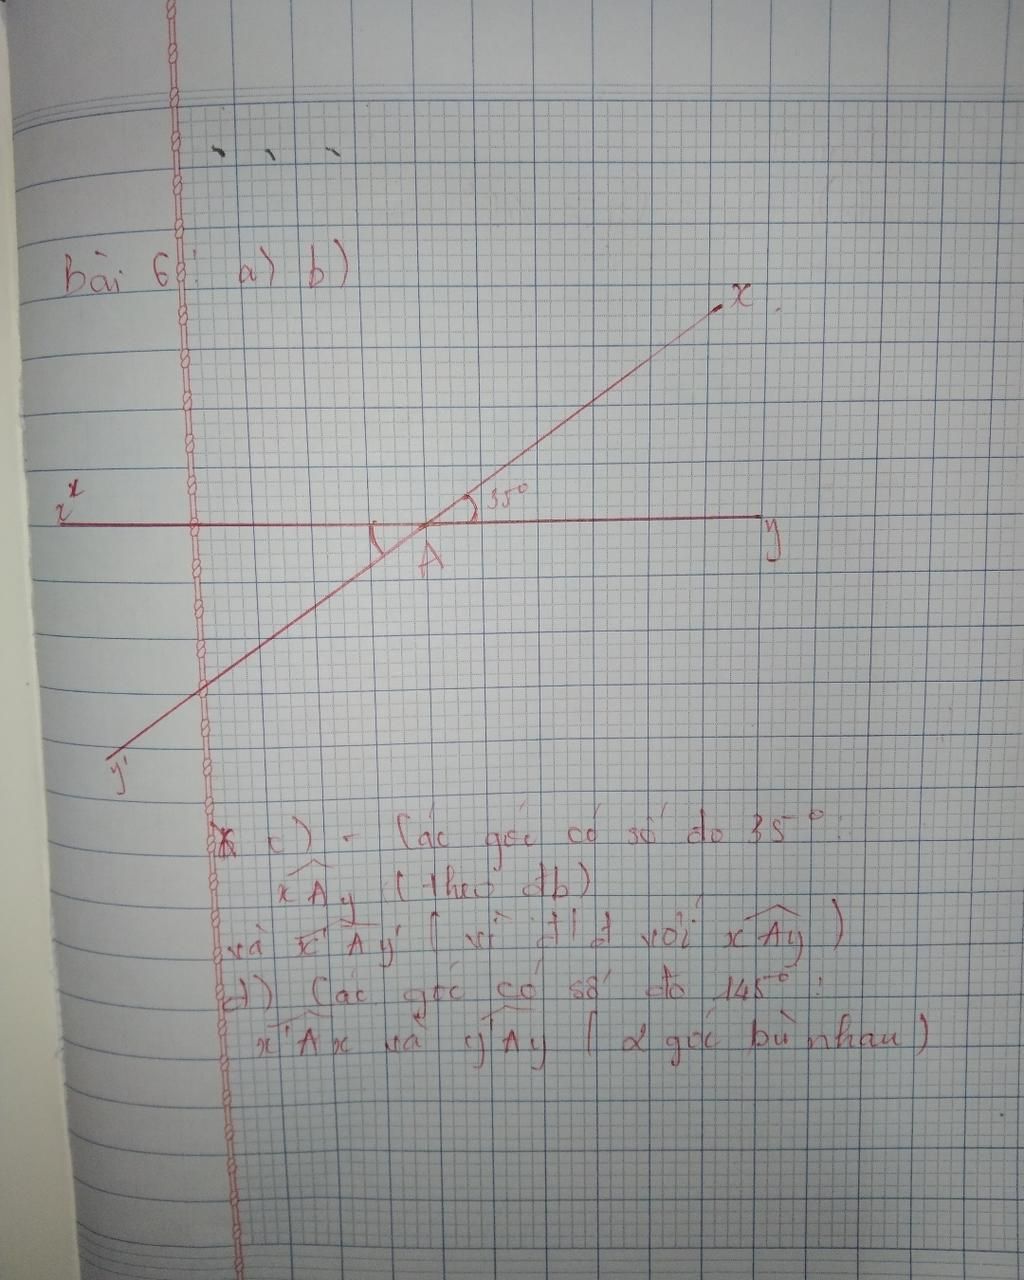 Bài 6: a) b)
x
x
35°
A
y
y'
c) - Các góc có số đo 35°:
xAy (theo đb)
và x'Ay' ( vì đ/đ với xAy )
d) Các góc có số đo 145°:
x'Ax và y'Ay ( 2 góc bù nhau )